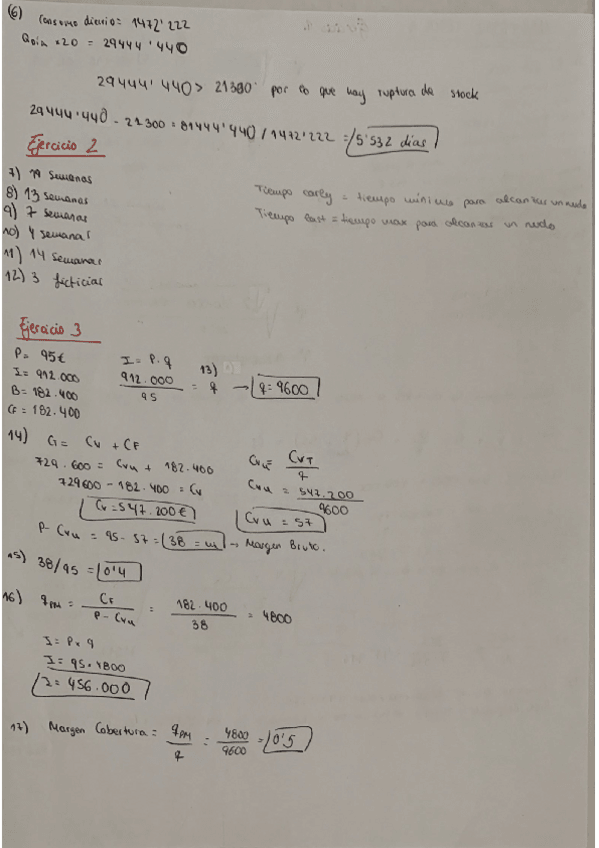 (6) Consumo diario = 1472'222
Qdia · 20 = 29444'440
29444'440 > 21300 por lo que hay ruptura de stock
29444'440 - 21300 = 81444'440 / 1472'222 = 5'532 dias
Ejercicio 2
7) 19 semanas
8) 13 semanas
9) 7 semanas
10) 4 semanas
11) 14 semanas
12) 3 ficticias
Tiempo early = tiempo mínimo para alcanzar un nudo
Tiempo last = tiempo max para alcanzar un nudo
Ejercicio 3
P = 95€
I = 912.000
B = 182.400
CF = 182.400
I = P · q
13)
912.000 / 95 = q → q = 9600
14) G = Cv + CF
729.600 = Cvu + 182.400
729600 - 182.400 = Cv
Cv = 547.200€
Cvu = CvT / q
Cvu = 547.200 / 9600
Cvu = 57
P - Cvu = 95 - 57 = 38 = m → Margen Bruto.
15) 38/95 = 0'4
16) qPM = CF / P - Cvu = 182.400 / 38 = 4800
I = P × q
I = 95 × 4800
I = 456.000
17) Margen Cobertura = qPM / q = 4800 / 9600 = 0'5